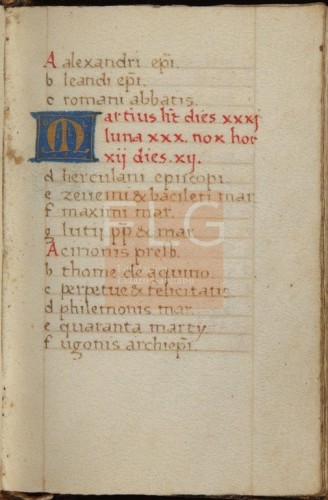 A alexandri epi.
b leandi epi.
c romani abbatis.
Martius ht dies xxxj
luna xxx. nox hor
xij dies. xij.
d herculani episcopi
e &
f maximi mar.
g lutii pp & mar.
A presb.
b thome de aquino.
c perpetue & felicitatis
d philemonis mar.
e quaranta marty
f ugonis archiepi.
FLG